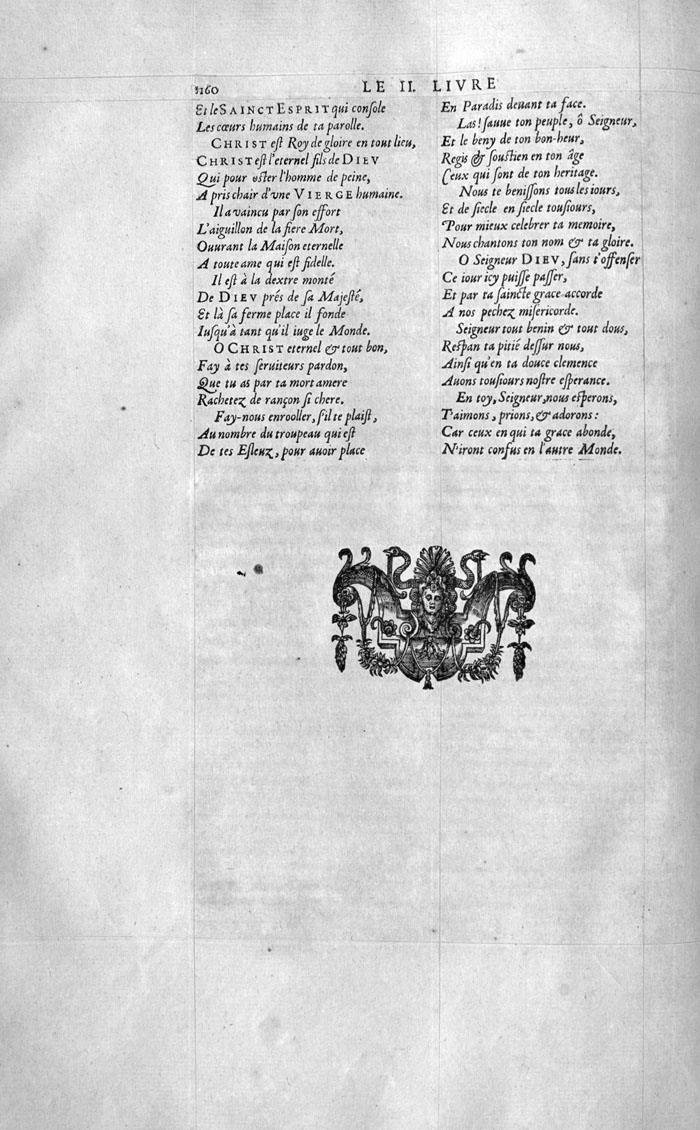 1160
LE II. LIVRE
Et le SAINCT ESPRIT qui console
Les cœurs humains de ta parolle.
CHRIST est Roy de gloire en tout lieu,
CHRIST est l'eternel fils de DIEV
Qui pour oster l'homme de peine,
A pris chair d'vne VIERGE humaine.
Il a vaincu par son effort
L'aiguillon de la fiere Mort,
Ouurant la Maison eternelle
A toute ame qui est fidelle.
Il est à la dextre monté
De DIEV prés de sa Majesté,
Et là sa ferme place il fonde
Iusqu'à tant qu'il iuge le Monde.
O CHRIST eternel & tout bon,
Fay à tes seruiteurs pardon,
Que tu as par ta mort amere
Rachetez de rançon si chere.
Fay-nous enrooller, s'il te plaist,
Au nombre du troupeau qui est
De tes Esleuz, pour auoir place
En Paradis deuant ta face.
Las! sauue ton peuple, ô Seigneur,
Et le beny de ton bon-heur,
Regis & soustien en ton âge
Ceux qui sont de ton heritage.
Nous te benissons tous les iours,
Et de siecle en siecle tousiours,
Pour mieux celebrer ta memoire,
Nous chantons ton nom & ta gloire.
O Seigneur DIEV, sans t'offenser
Ce iour icy puisse passer,
Et par ta saincte grace accorde
A nos pechez misericorde.
Seigneur tout benin & tout dous,
Respan ta pitié dessur nous,
Ainsi qu'en ta douce clemence
Auons tousiours nostre esperance.
En toy, Seigneur, nous esperons,
T'aimons, prions, & adorons:
Car ceux en qui ta grace abonde,
N'iront confus en l'autre Monde.